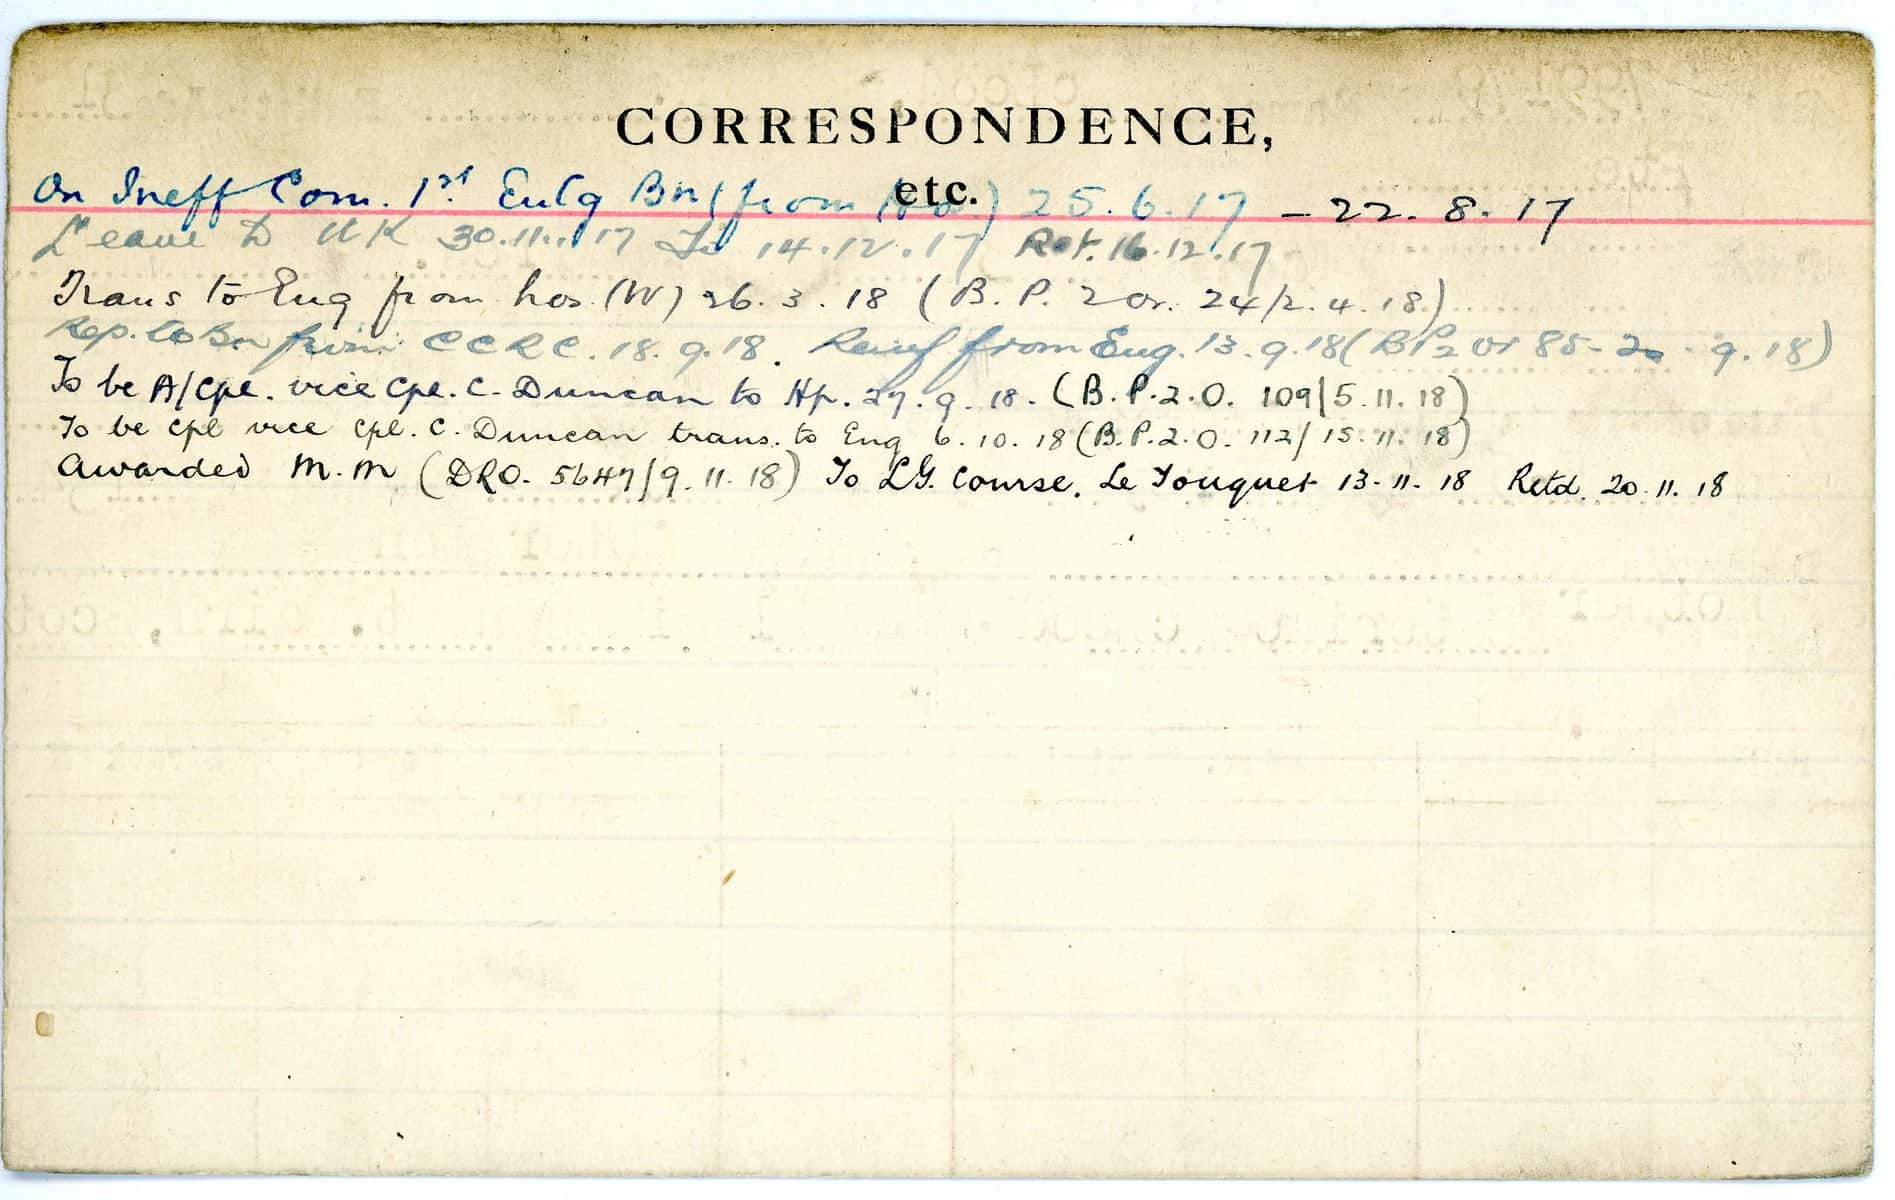 CORRESPONDENCE,
etc.
On Ineff Com. 1st. Entg Bn (from ) 25.6.17 - 22.8.17
Leave to UK 30.11.17 To 14.12.17 Ret. 16.12.17
Trans to Eng from hos (W) 26.3.18 (B.P. 2 Or. 24/2.4.18)
Rep. to Bn from C C R C. 18.9.18. Reinf from Eng. 13.9.18 (BP2 Or 85-20.9.18)
To be A/Cpl. vice Cpl. C. Duncan to Hp. 27.9.18. (B.P.2.O. 109/5.11.18)
To be Cpl vice Cpl. C. Duncan trans. to Eng 6.10.18 (B.P.2.O. 112/15.11.18)
Awarded M.M (DRO. 5647/9.11.18) To LG. Course. Le Touquet 13-11-18 Retd. 20.11.18